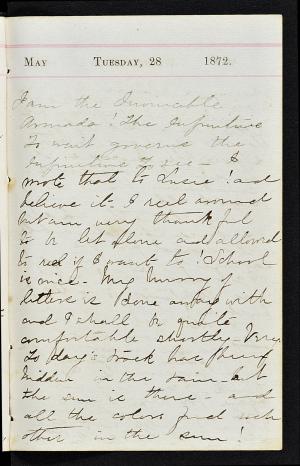 May Tuesday, 28 1872.
I am the Invincible
Armada! The Infinitive
To wait governs the
Infinitive to see — I
wrote that to Susie! and
believe it. I reel around
but am very thankful
to be let alone and allowed
to reel if I want to! School
is nice. My hurry of
letters is done away with
and I shall be quite
comfortable shortly.
To day's track has been
hidden in the rain — but
the sun is there — and
all the colors find each
other in the sun!